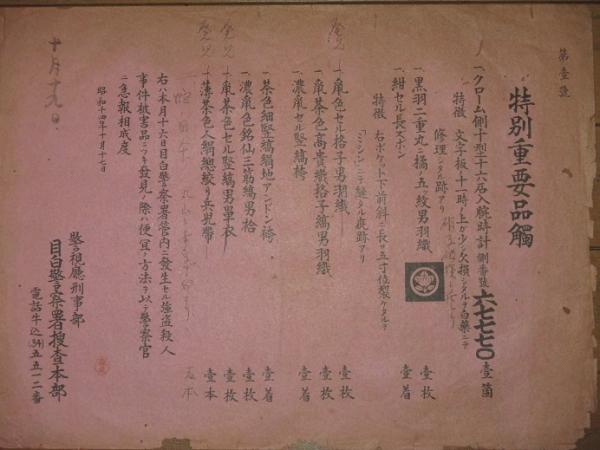 第壹號
特別重要品觸
一、クローム側十型三十六石入腕時計側番號六七七七〇 壹箇
特徴 文字板ノ十一時ノ上ガ少シク欠損シタルヲ白藥ニテ
修理シタル跡アリ
一、黒羽二重丸ニ橘ノ五ツ紋男羽織 壹枚
一、紺セル長ズボン 壹着
特徴 右ポケット下前斜ニ長サ五寸位裂ケタルヲ
「ミシン」ニテ縫タル痕跡アリ
一、鼠色セル格子男羽織 壹枚
一、鼠茶色高貴織格子縞男羽織 壹枚
一、濃鼠セル竪縞袴 壹着
一、茶色細竪縞絹地アンドン袴 壹着
一、濃鼠色銘仙三筋縞男袷 壹枚
一、鼠茶色セル竪縞男單衣 壹枚
一、薄茶色人絹總絞リ兵兒帶 壹本
右ハ本月十六日目白警察署管内ニ發生セル強盗殺人
事件被害品ニツキ發見ノ際ハ便宜ノ方法ヲ以テ警察官
ニ急報相成度
昭和十四年十月十七日
警視廳刑事部
目白警察署捜査本部
電話牛込(34)五五一二番
十月十九日